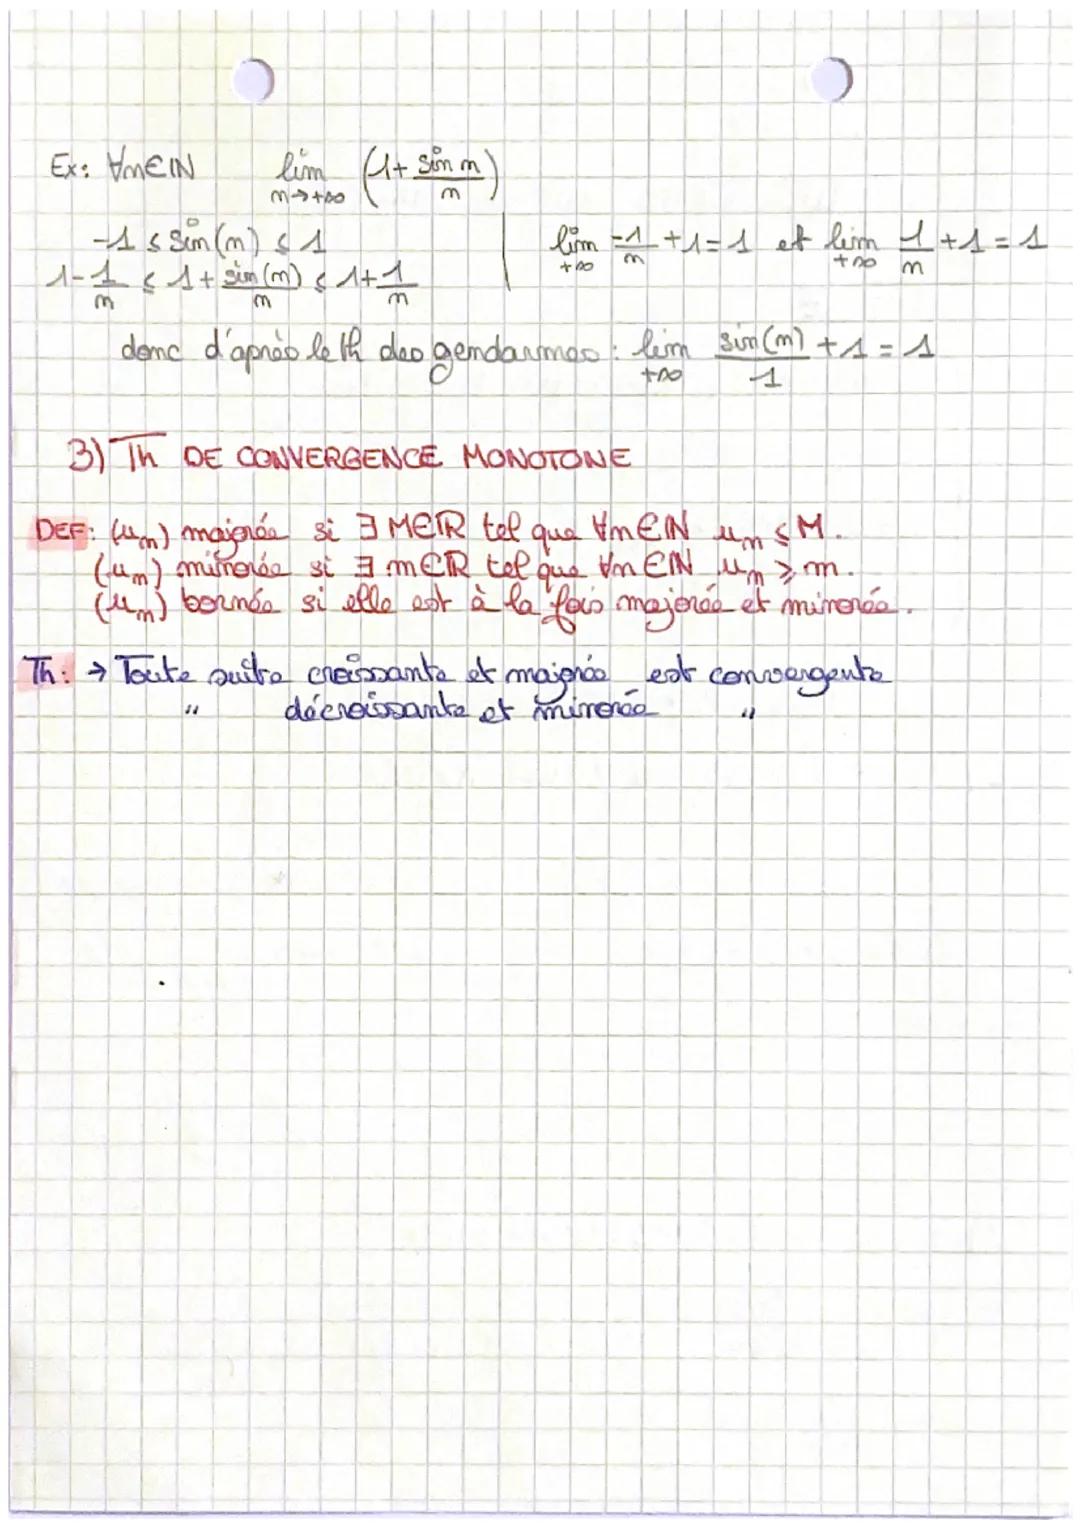 Ex: ∀n∈ℕ lim n→+∞ (1+ sin n / n)
-1 ≤ sin(n) ≤ 1 | lim +∞ -1/n +1=1 et lim +∞ 1/n +1=1
1-1/n ≤ 1+ sin(n)/n ≤ 1+1/n
donc d'après le th des gendarmes : lim +∞ sin(n)/1 +1=1
3) Th DE CONVERGENCE MONOTONE
DEF: (un) majorée si ∃ M∈ℝ tel que ∀n∈ℕ un ≤ M.
(un) minorée si ∃ m∈ℝ tel que ∀n∈ℕ un ≥ m.
(un) bornée si elle est à la fois majorée et minorée.
Th: → Toute suite croissante et majorée est convergente
" décroissante et minorée "